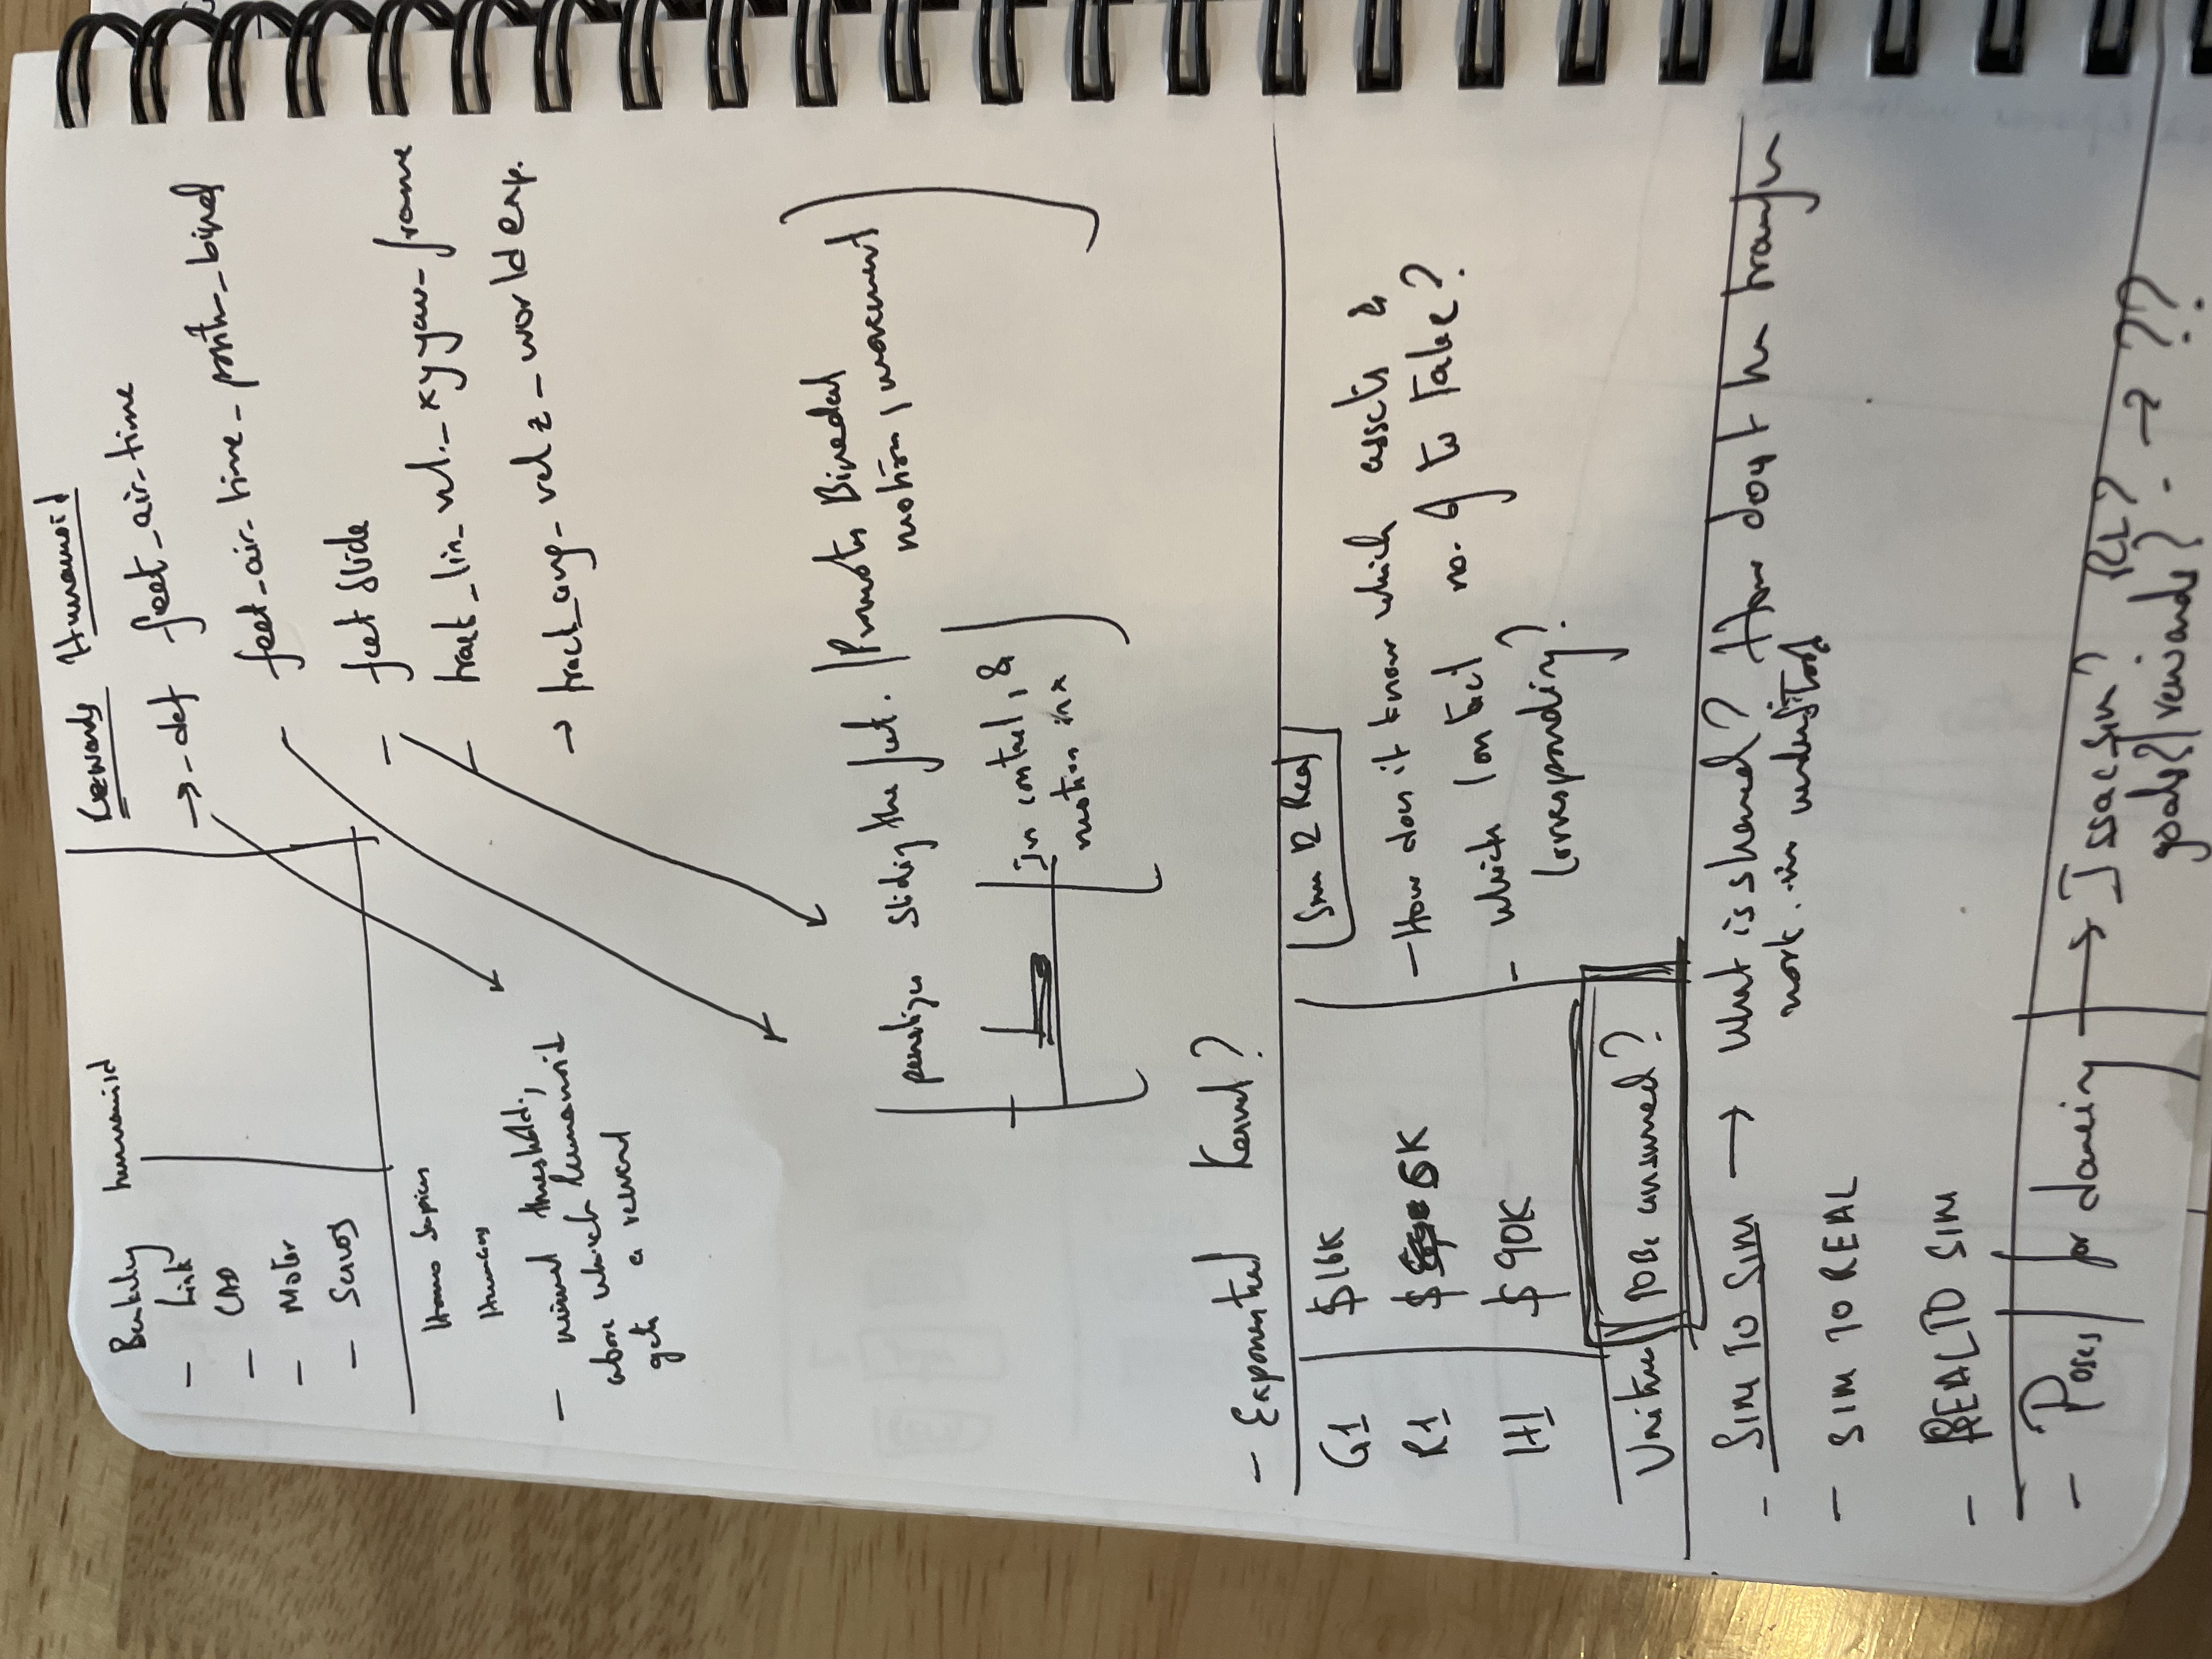 Berkeley humanoid
- Link
- CAD
- Motor
- Servos
Homo Sapiens
Humans
- minimal threshold,
above which humanoid
gets a reward
Rewards Humanoid
→ - def feet_air_time
feet_air_time_positive_biped
- feet slide
- track_lin_vel_xy yaw_frame
→ track_ang_vel z_world exp.
penalizes sliding the feet. / Promotes Bipedal
motion, movement
In control, &
motion in x
- Exponential Kernel?
G1 $16K
R1 $ 5K
H1 $90K
Unitree TO Be answered?
Sim 2 Real
- How does it know which assets &
- which contact no. of to take?
corresponding?
- SIM TO SIM → What is shared? How does the transfer
work. understood
- SIM TO REAL
- REAL TO SIM
- Poses for dancing → Issac Sim? RL?
goals?/rewards? → ??